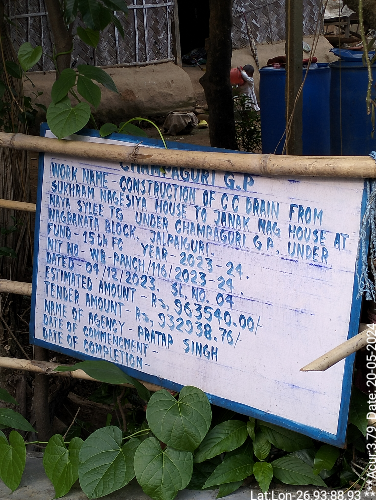 CHAMPAGURI G.P
WORK NAME - CONSTRUCTION OF C C DRAIN FROM
SUKHRAM NAGESIYA HOUSE TO JANAK NAG HOUSE AT
NAYA SYLEE TG UNDER CHAMPAGURI G.P. UNDER
NAGRAKATA BLOCK, JALPAIGURI.
FUND - 15th FC YEAR - 2023-24.
NIT NO - WB-PANCH/116/2023-24.
DATED - 04/12/2023. SL. NO. 04
ESTIMATED AMOUNT - Rs, 963540.00/-
TENDER AMOUNT - Rs, 932938.76/-
NAME OF AGENCY - PRATAP SINGH
DATE OF COMMENCMENT -
DATE OF COMPLETION -
Lat,Lon-26.93,88.93 **
Accur:3.79 Date: 20-05-2024